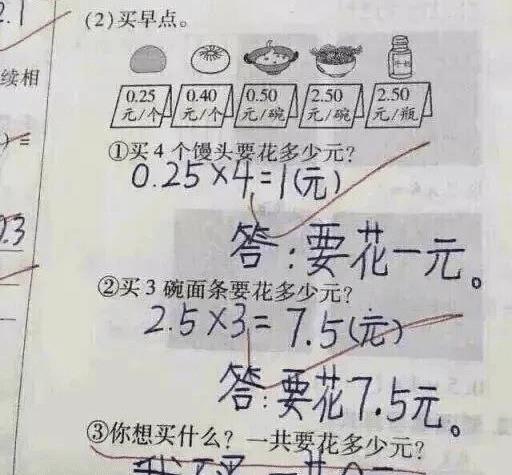 2.1
(2)买早点。
续相
0.25 0.40 0.50 2.50 2.50
元/个 元/个 元/碗 元/碗 元/瓶
①买 4 个馒头要花多少元?
0.25×4=1(元)
答:要花一元。
②买 3 碗面条要花多少元?
2.5×3=7.5(元)
答:要花7.5元。
③你想买什么? 一共要花多少元?